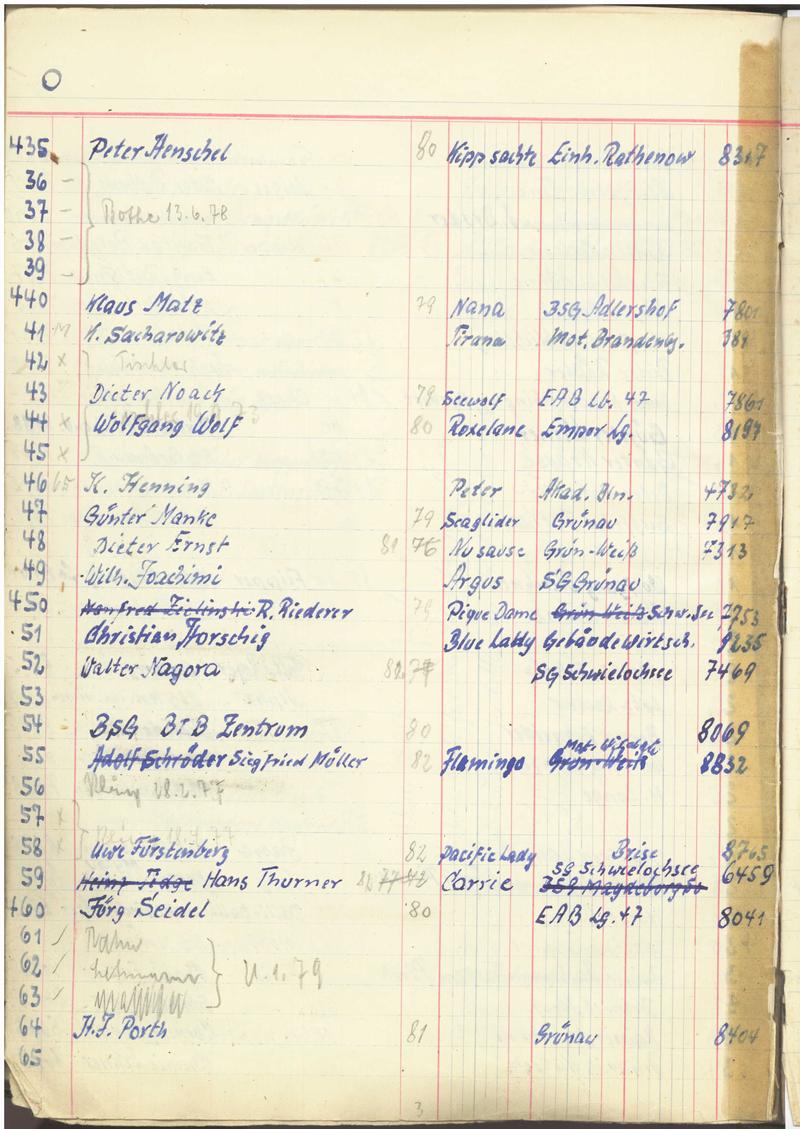 O
435 Peter Henschel 80 Kipp sachte Einh. Rathenow 8317
36 –
37 – Bothe 13.6.78
38 –
39 –
440 Klaus Matz 79 Nana BSG Adlershof 7801
41 K. Sacharowitz Tirana Mot. Brandenbg. 389
42 x Tischler
43 Dieter Noack 79 Seewolf EAB Lb. 47 7861
44 x Wolfgang Wolf 80 Roxelane Empor Lg. 8197
45 x
46 65 K. Henning Peter Akad. Bln. 4732
47 Günter Manke 79 Seaglider Grünau 7917
48 Dieter Ernst 81 76 Nu sause Grün-Weiß 7313
49 Wilh. Joachimi Argus SG Grünau
450 Manfred Zielinski R. Riederer 79 Pique Dame Grün-Weiß Schw. See 7753
51 Christian Horschig Blue Lady Gebäudewirtsch. 8235
52 Walter Nagora SG Schwielochsee 7469
53
54 BSG BTB Zentrum 80 8069
55 Adolf Schröder Siegfried Müller 82 Flamingo Grün-Weiß 8832
56 28.2.77
57 x
58 x Uwe Fürstenberg 82 Pacific Lady Brise 8765
59 Heinz Hans Thurner 82 77 82 Carrie SG Schwielochsee 6459
460 Jörg Seidel 80 EAB Lg. 47 8041
61 /
62 / Lehmann 11.1.79
63 /
64 H.J. Porth 81 Grünau 8404
65
3